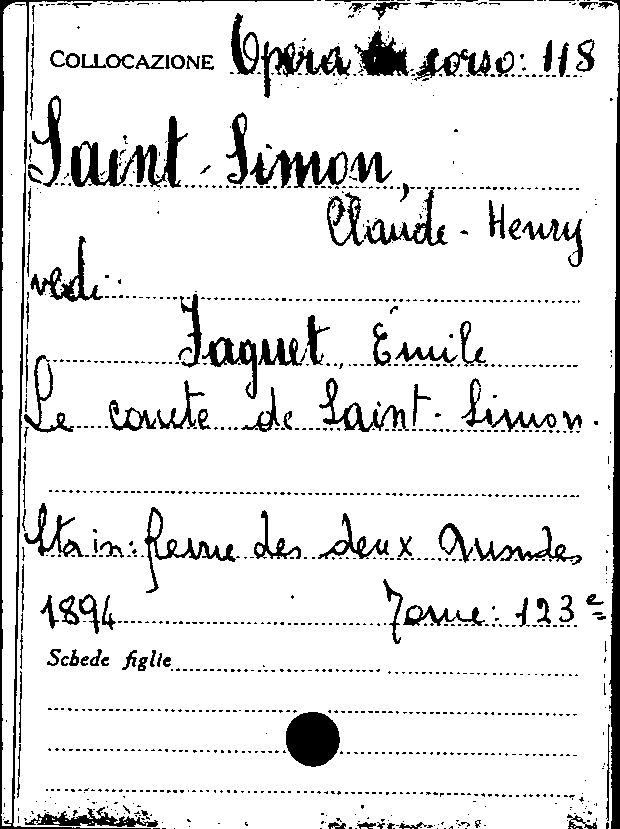 COLLOCAZIONE Opera in corso: 118
Saint-Simon,
Claude-Henry
vedi:
Faguet, Émile
Le comte de Saint-Simon.
Sta in: Revue des deux Mondes,
1894 Tome: 123e
Schede figlie